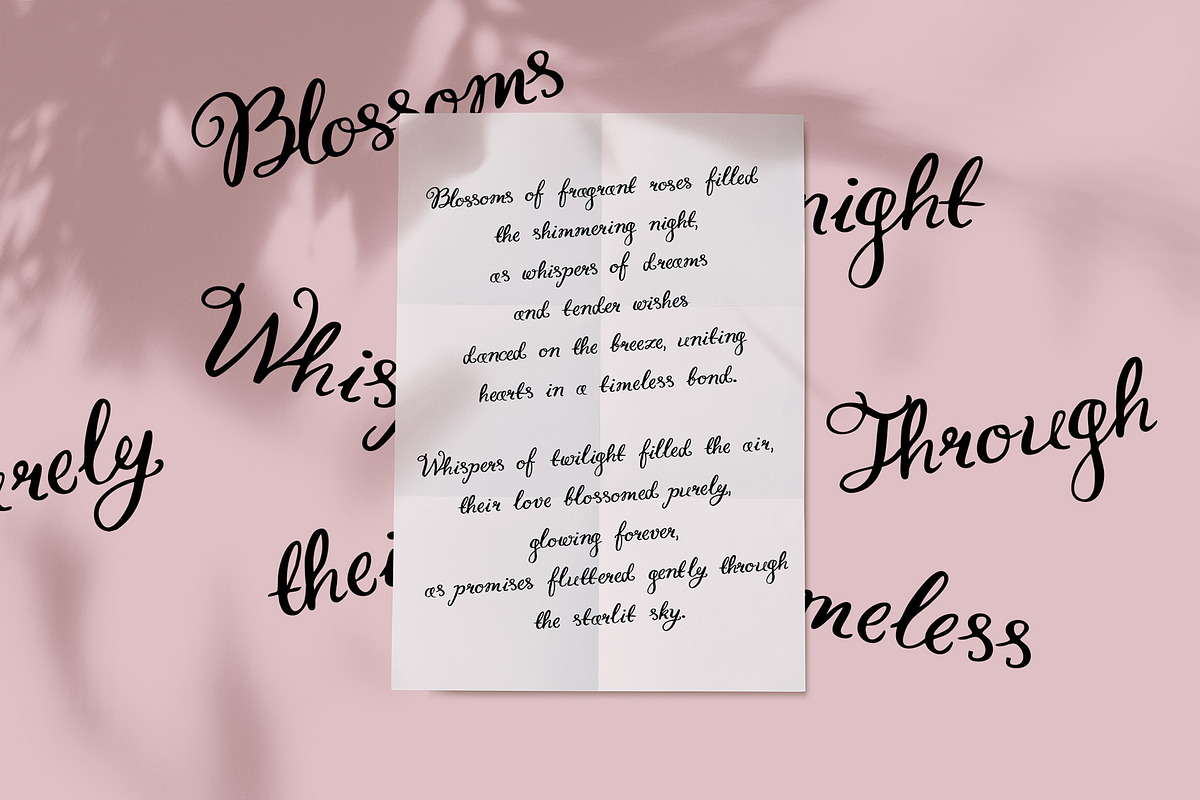 Blossoms
night
Whis
rely
Through
thei
meless
Blossoms of fragrant roses filled
the shimmering night,
as whispers of dreams
and tender wishes
danced on the breeze, uniting
hearts in a timeless bond.
Whispers of twilight filled the air,
their love blossomed purely,
glowing forever,
as promises fluttered gently through
the starlit sky.